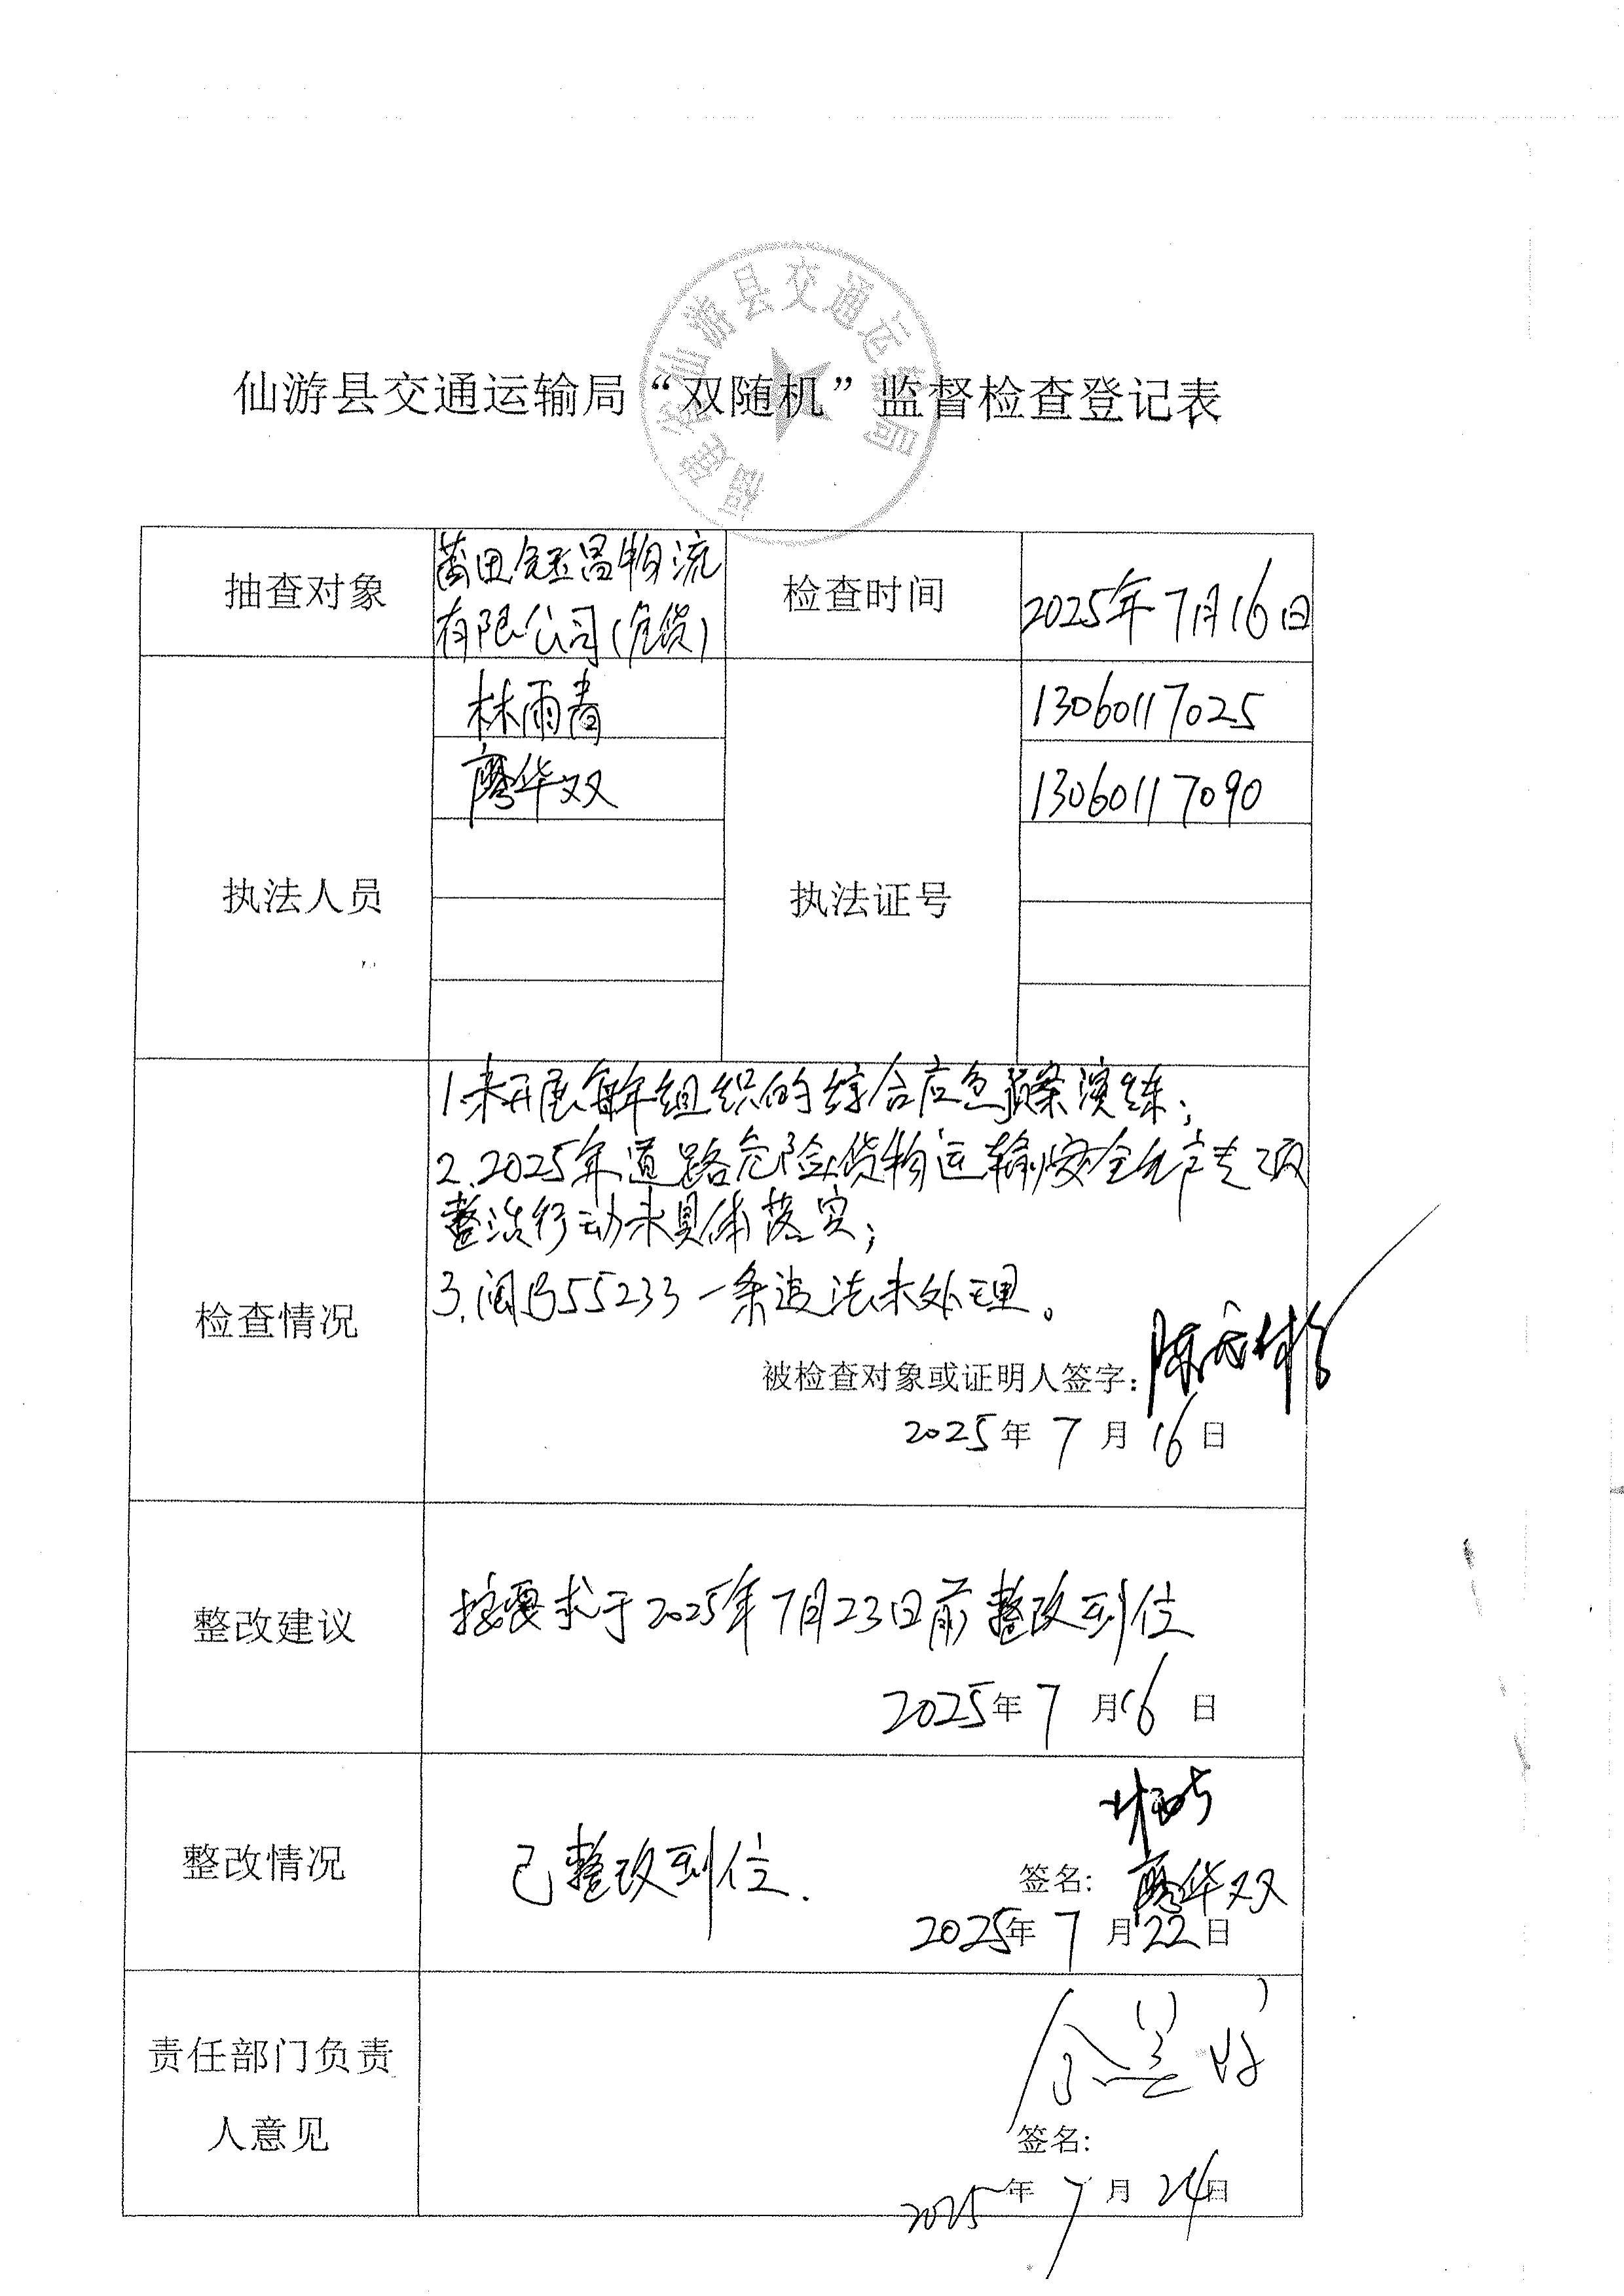 福建省仙游县交通运输局
仙游县交通运输局“双随机”监督检查登记表
抽查对象
莆田 昌物流
有限公司(危货)
检查时间
2025年7月16日
执法人员
林雨青
廖华双
执法证号
13060117025
13060117090
检查情况
1.未开展每年组织的综合应急预案演练;
2.2025年道路危险货物运输安全生产专项
整治行动未具体落实;
3.闽B55233一条违法未处理。
被检查对象或证明人签字:
2025年7月16日
整改建议
按要求于2025年7月23日前整改到位
2025年7月16日
整改情况
已整改到位.
签名: 廖华双
2025年7月22日
责任部门负责
人意见
签名:
2025年7月24日